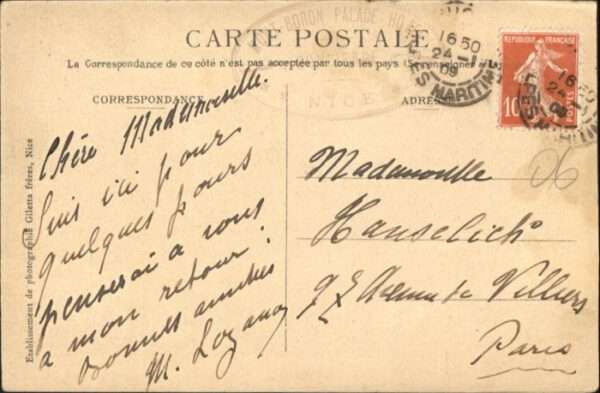 MONT BORON PALACE HO
NICE
CARTE POSTALE
La Correspondance de ce côté n'est pas acceptée par tous les pays (Se renseigner
CORRESPONDANCE
ADRES
16 50
24
09
ES MARITIM
RÉPUBLIQUE FRANÇAISE
10
POSTES
16
Chère Mademoiselle.
Suis ici pour
quelques jours
penserai à vous
à mon retour.
Bonnes amitiés
M. Lozano
Mademoiselle
Hanselich
Avenue de Villiers
Paris
06
Etablissement de photographie Giletta frères, Nice